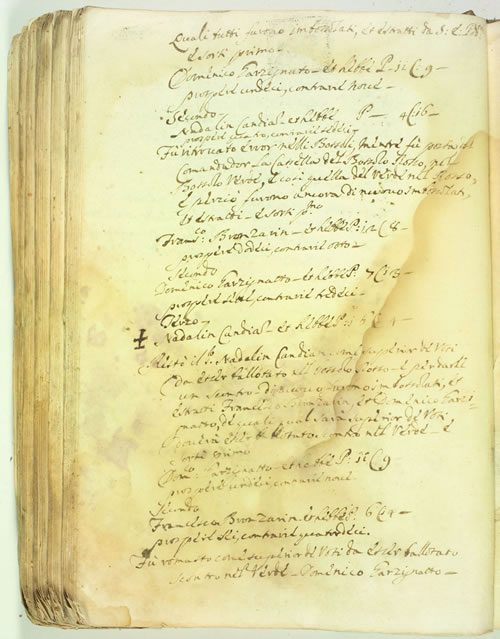 quali tutti furono imbossolati, et estratti da S: E. P.
e sortì primo.
Domenico Farzignato – et hebbe P: 11 C 9 –
prospere undeci, contrarie nove –
Secondo
Nadalin Candian – et hebbe P – 4 C 16 –
prospere quatro, contrarie sedeci –
Fu ritrovato error nelli Bossoli, mentre fu posta dal
Comandador la Cassella del Bossolo Rosso, nel
Bossolo Verde, e così quella del Verde nel Rosso,
e perciò furono ancora di nuovo imbossolati,
et estratti – e sortì p.mo
Franc.o Bronzarin – et hebbe P: 12 C 8 –
prospere dodeci, contrarie otto –
Secondo
Domenico Farzignatto – et hebbe P: 7 C 13 –
prospere sette, contrarie tredeci –
Terzo –
Nadalin Candian – et hebbe P: C 4 –
Restò il S.r Nadalin Candian come superior de Voti
da esser ballotato nel Bossolo Rosso, e per darli
un Scontro di nuovo furono imbossolati, et
estratti Francesco Bronzarin, et Domenico Farzi-
gnatto, de quali qual sarà superior de Voti
doverà esser contro nel Verde – e
sortì primo
Dom.co Farzignatto – et hebbe P: 11 C 9
prospere undeci, contrarie nove
Secondo
Francesco Bronzarin et hebbe P: 6 C 14 –
prospere sei, contrarie quatordeci.
Fu rimasto come superior de Voti da esser ballotato
scontro nel Verde – Domenico Farzignatto –